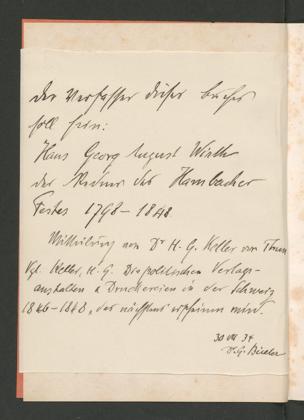 Der Verfasser dieses Buches
soll sein:
Hans Georg August Wirth
der Redner des Hambacher
Festes 1798–1848.
Mitteilung von Dr H. G. Keller von Thun
Vgl. Keller, H. G. Die politischen Verlags-
anstalten u Druckereien in der Schweiz
1840–1848, das nächstens erscheinen wird.
30 VII 34
Dr. G.